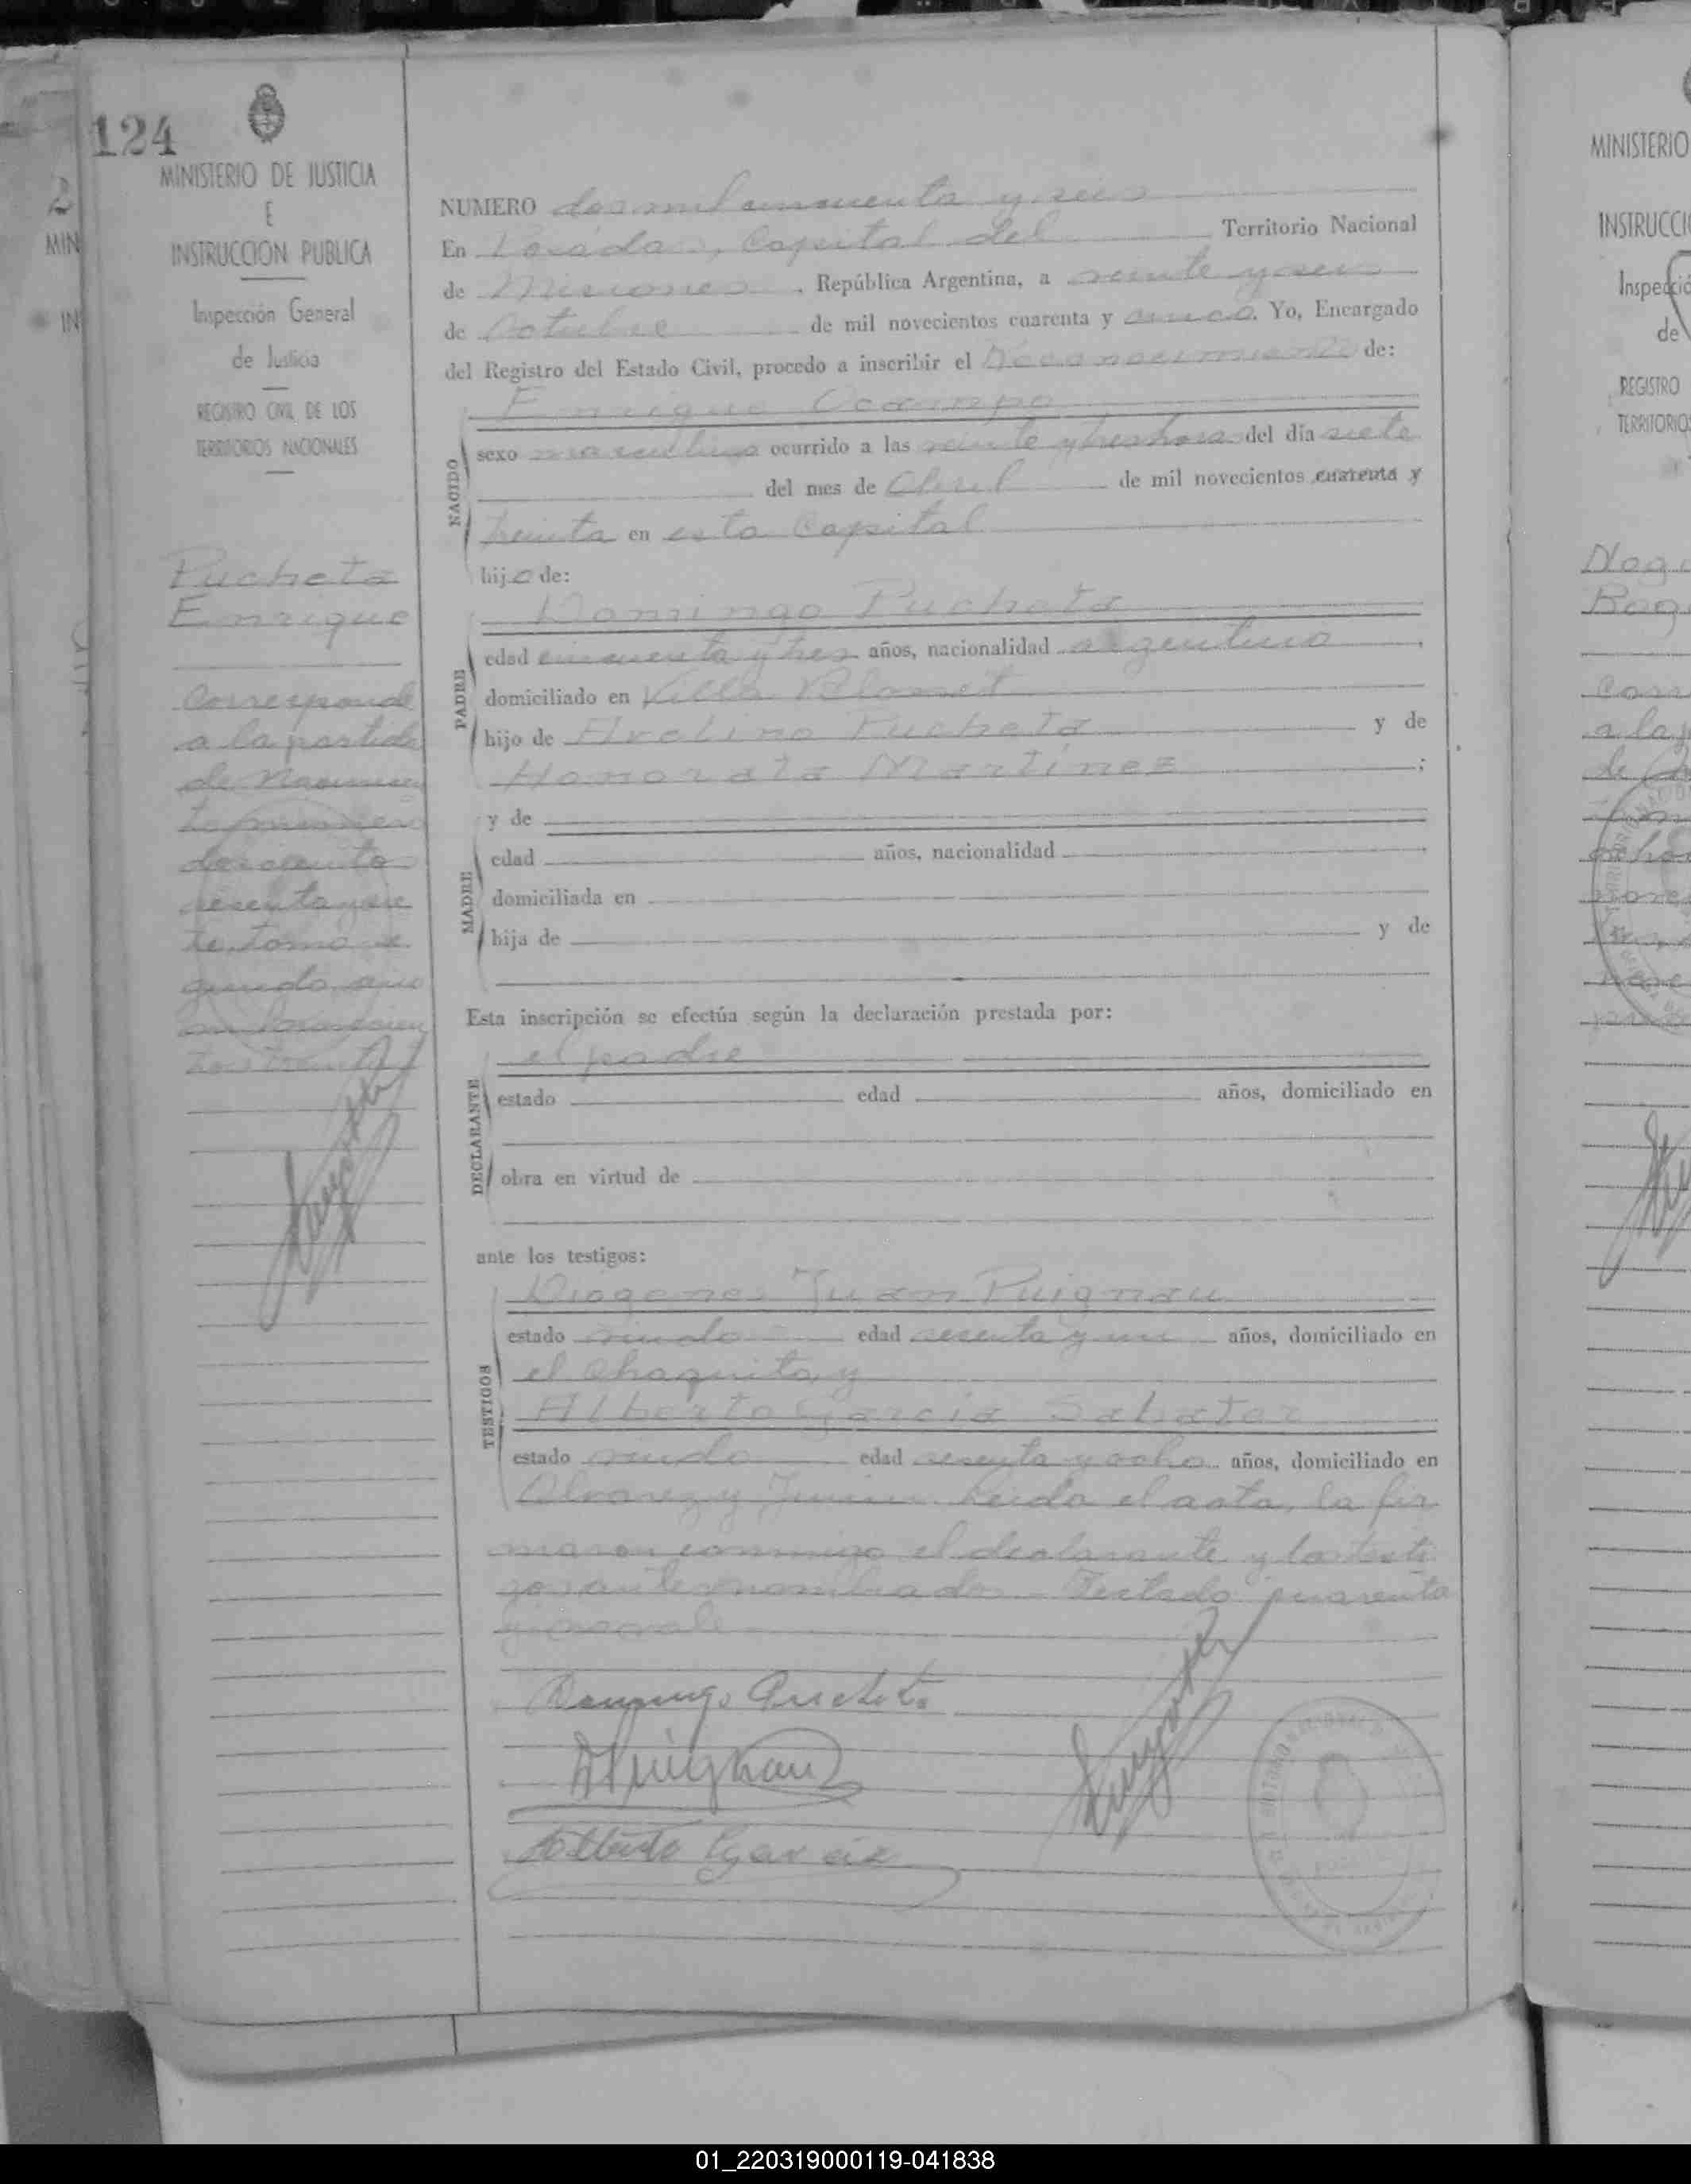 124
MINISTERIO DE JUSTICIA
E
INSTRUCCION PUBLICA
Inspección General
de Justicia
REGISTRO CIVIL DE LOS
TERRITORIOS NACIONALES
Pucheta
Enrique
Corresponde
a la partida
de Nacimien
to número
doscientos
sesenta y sie
te, tomo se
gundo, año
mil novecien
tos treinta
NUMERO dos mil cincuenta y seis
En Posadas, Capital del Territorio Nacional
de Misiones, República Argentina, a veinte y seis
de Octubre de mil novecientos cuarenta y cinco. Yo, Encargado
del Registro del Estado Civil, procedo a inscribir el Reconocimiento de:
Enrique Ocampo
NACIDO
sexo masculino ocurrido a las veinte y tres horas del día siete
del mes de Abril de mil novecientos cuarenta y
treinta en esta Capital
hijo de:
Domingo Pucheta
PADRE
edad cincuenta y tres años, nacionalidad argentino,
domiciliado en Villa Blosset
hijo de Avelino Pucheta y de
Honorata Martínez;
MADRE
y de
edad años, nacionalidad
domiciliada en
hija de y de
Esta inscripción se efectúa según la declaración prestada por:
DECLARANTE
el padre
estado edad años, domiciliado en
obra en virtud de
ante los testigos:
TESTIGOS
Diogenes Juan Puignau
estado viudo edad sesenta y un años, domiciliado en
el Chaquito, y
Alberto Garcia Sabater
estado viudo edad sesenta y ocho años, domiciliado en
Alvarez y Junin. Leida el acta, la fir
maron conmigo el declarante y los testi
gos antes nombrados. Testado: cuarenta
y: no vale
Domingo Pucheta
DPuignau
Alberto Garcia
MINISTERIO
INSTRUCCI
Inspecció
de
REGISTRO
TERRITORIO
a la
01_220319000119-041838